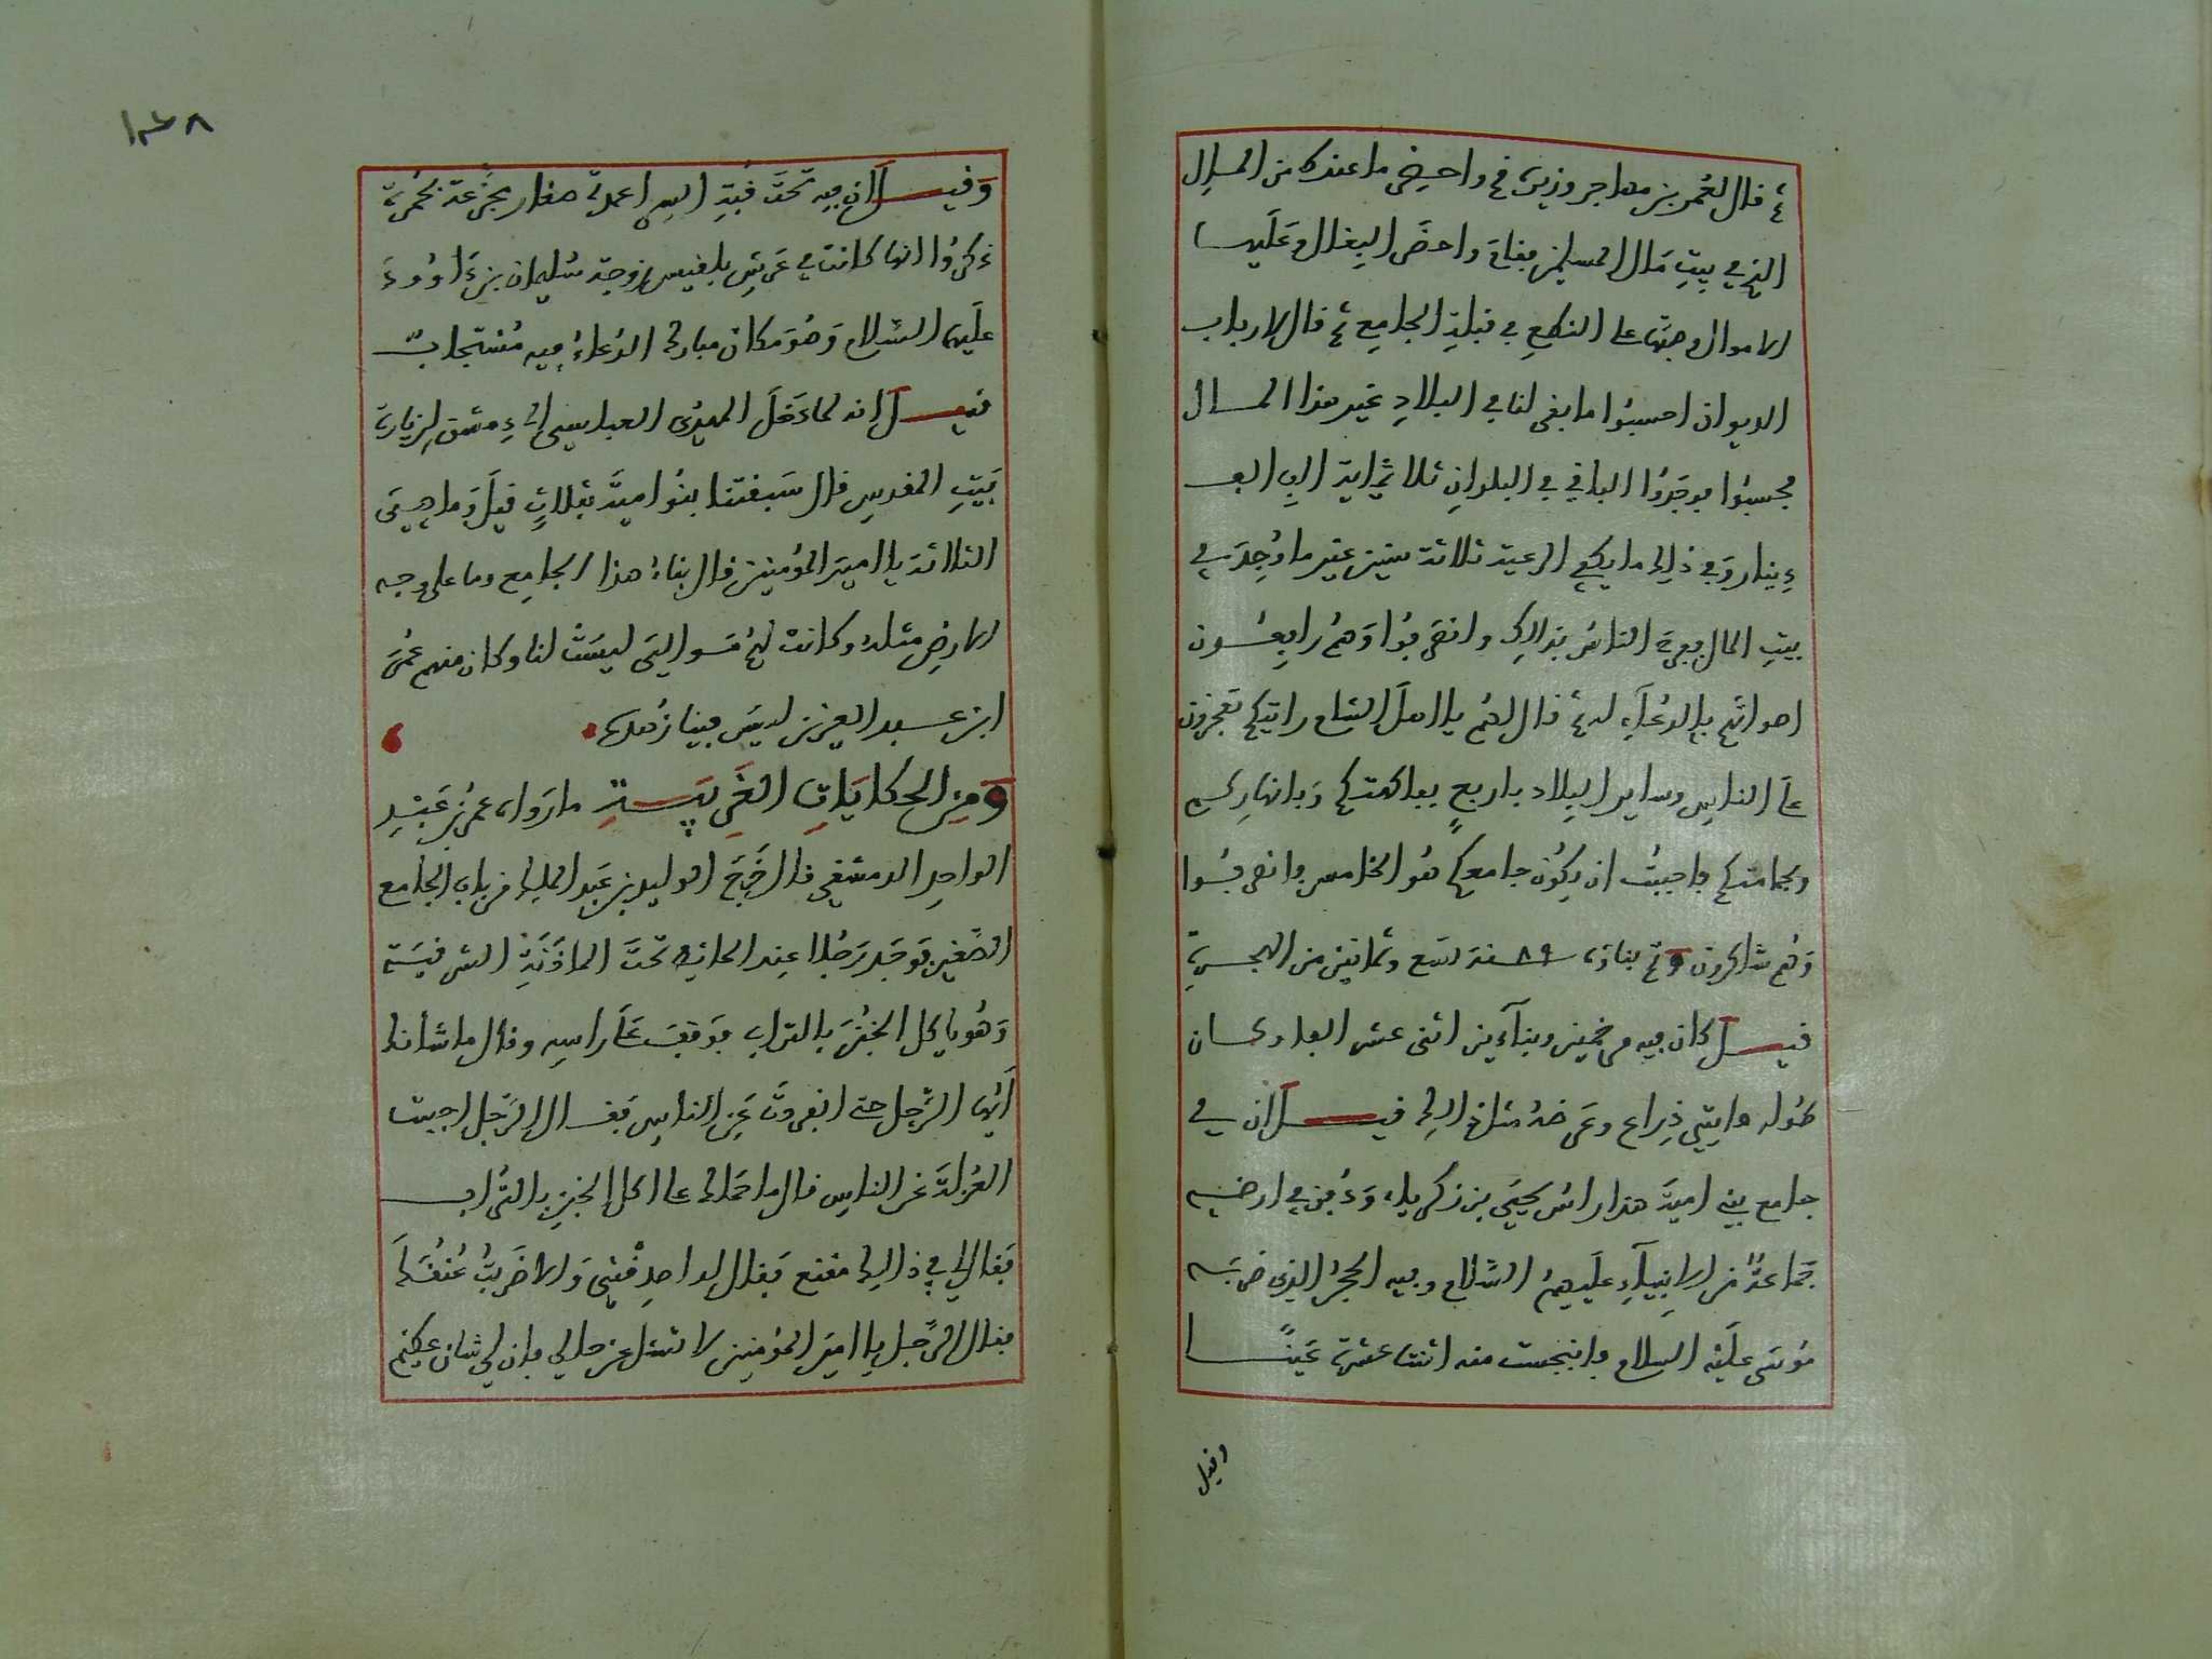 ثم قال لعمر بن مهاجر وزيره قم واحضر ما عندك من المال
الذي في بيت مال المسلمين فقام واحضر البغال وعليها
الاموال وصبها على النطع في قبلة الجامع ثم قال لارباب
الديوان احسبوا ما بقى لنا في البلاد غير هذا المال
فحسبوا فوجدوا الباقي في البلدان ثلاثماية الف الف
دينار وفي ذلك ما يكفي الرعية ثلاثة سنين غير ما وجد في
بيت المال ففرح الناس بذالك وانصرفوا وهم رافعون
اصواتهم بالدعاء له ثم قال لهم يا اهل الشام رايتكم تفخرون
على الناس وساير البلاد باربع بفاكهتكم وبانهاركم
وبحمامتكم فاحببت ان يكون جامعكم هو الخامس فانصرفوا
وهم شاكرون وتم بناؤه سنة ٨٩ تسع وثمانين من الهجرية
قيل كان فيه مرخمين وبنآءين اثنى عشر الفا وكان
طوله مايتي ذراع وعرضه مثل ذالك قيل ان في
جامع بني امية هذا راس يحيى بن زكرياء ودفن في ارضه
جماعة من الانبيآء عليهم السلام وفيه الحجر الذي ضربه
موسى عليه السلام فانبجست منه اثنتا عشرة عينا
وقيل
١٣٨
وقيل ان فيه تحت قبة اعمدة صغار مجزعة بحمرة
ذكروا انها كانت في عرش بلقيس زوجة سليمان بن داوود
عليهما السلام وهو مكان مبارك الدعاء فيه مستجاب
قيل انه لما دخل المهدى العباسي الى دمشق لزيارة
بيت المقدس قال سبقتنا بنوا امية بثلاث قيل وما هي
الثلاثة يا امير المؤمنين قال بناء هذا الجامع وما على وجه
الارض مثله وكانت لهم موالي ليست لنا وكان منهم عمر
ابن عبد العزيز ليس فينا زهده
ومن الحكايات الغريبة ما رواه عمر بن عبد
الواحد الدمشقي قال خرج الوليد بن عبد الملك من باب الجامع
الصغير فوجد رجلا عند الحايط تحت الماذنة الشرقية
وهو ياكل الخبز بالتراب فوقف على راسه وقال ما شانك
ايها الرجل حتى انفردت عن الناس فقال الرجل احببت
العزلة عن الناس قال ما حملك على اكل الخبز بالتراب
فقال لي في ذالك مقنع فقال له اصدقني والا ضربت عنقك
فقال الرجل يا امير المؤمنين لا تسئل عن حالي فان لي شان عظيم